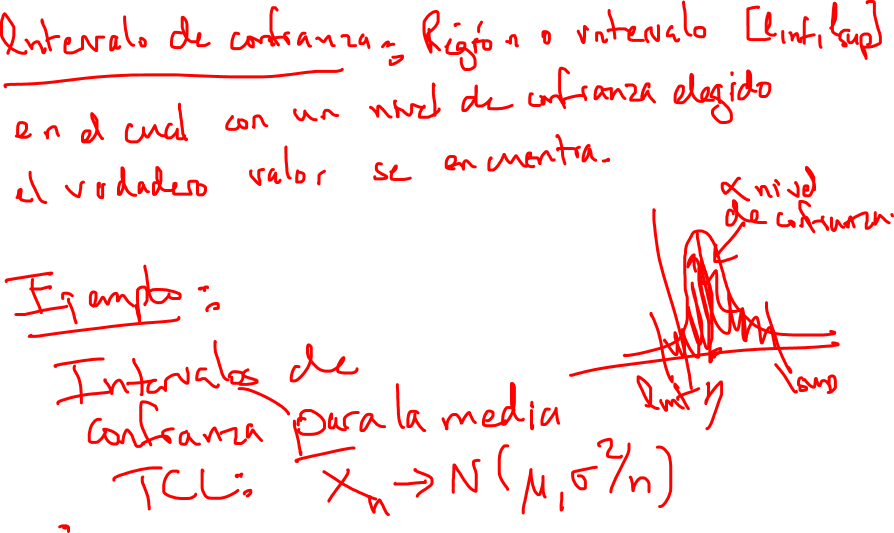 Intervalo de confianza: Región o intervalo [linf, lsup]
en el cual con un nivel de confianza elegido
el verdadero valor se encuentra.
α nivel
de confianza.
Ejemplo:
linf η lsup
Intervalos de
confianza para la media
TCL: Xn → N(μ, σ²/n)